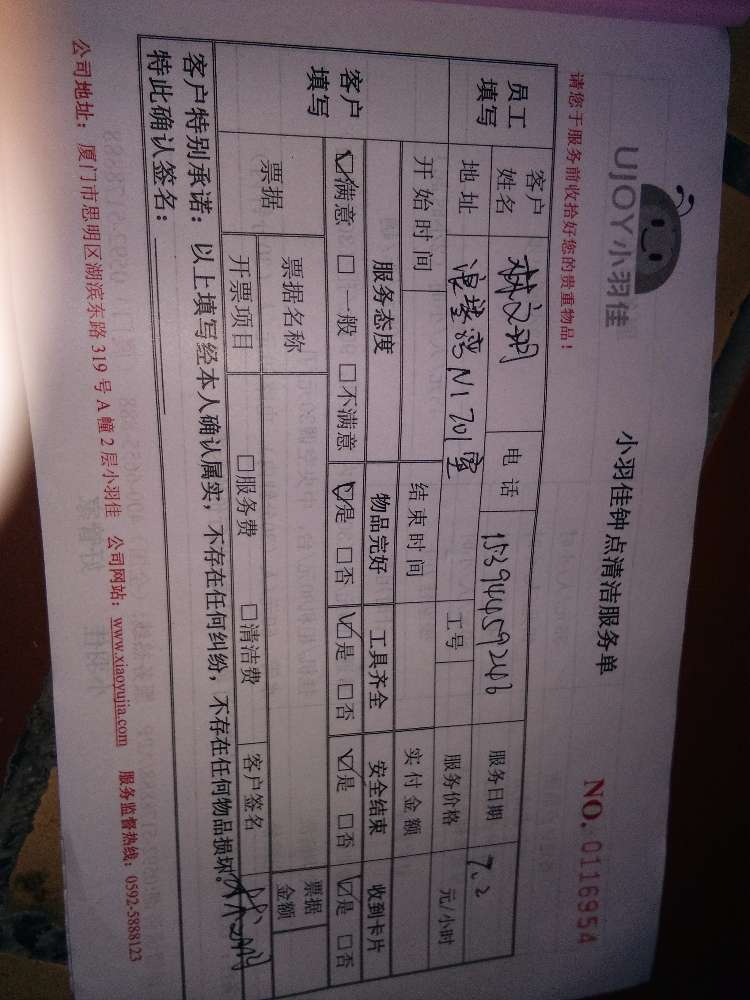 UJOY小羽佳
小羽佳钟点清洁服务单
NO. 0116954
请您于服务前收拾好您的贵重物品！
员工填写 客户姓名 电话 服务日期 7.2
地址 N1 701室 工号 服务价格 元/小时
开始时间 结束时间 实付金额
客户填写 服务态度 物品完好 工具齐全 安全结束 收到卡片
☑满意 □一般 □不满意 ☑是 □否 ☑是 □否 ☑是 □否 ☑是 □否
票据 票据名称 票据金额
开票项目 □服务费 □清洁费 客户签名
客户特别承诺：以上填写经本人确认属实，不存在任何纠纷，不存在任何物品损坏。
特此确认签名：
公司地址：厦门市思明区湖滨东路 319 号 A 幢 2 层小羽佳 公司网站：www.xiaoyujia.com 服务监督热线：0592-5888123